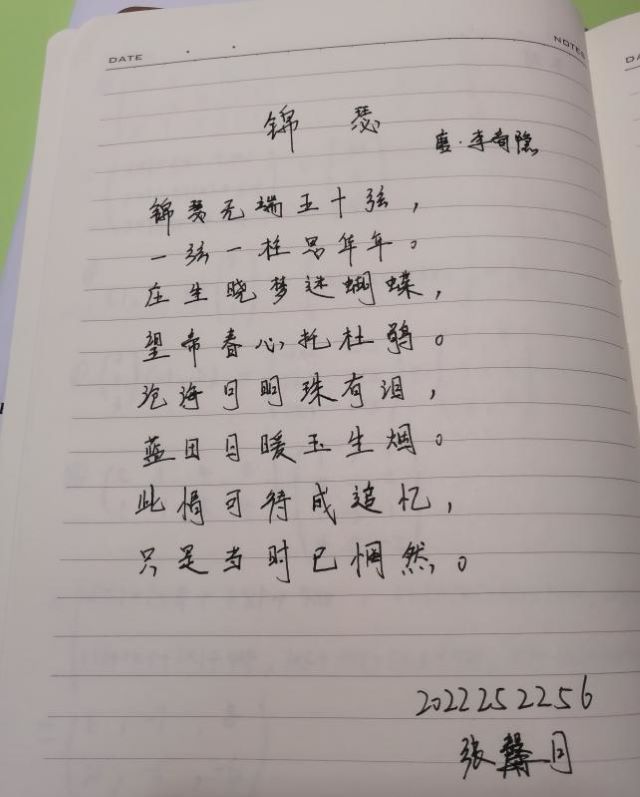 DATE
NOTES
锦瑟
唐·李商隐
锦瑟无端五十弦，
一弦一柱思年年。
庄生晓梦迷蝴蝶，
望帝春心托杜鹃。
沧海月明珠有泪，
蓝田日暖玉生烟。
此情可待成追忆，
只是当时已惘然。
2022252256
张馨月